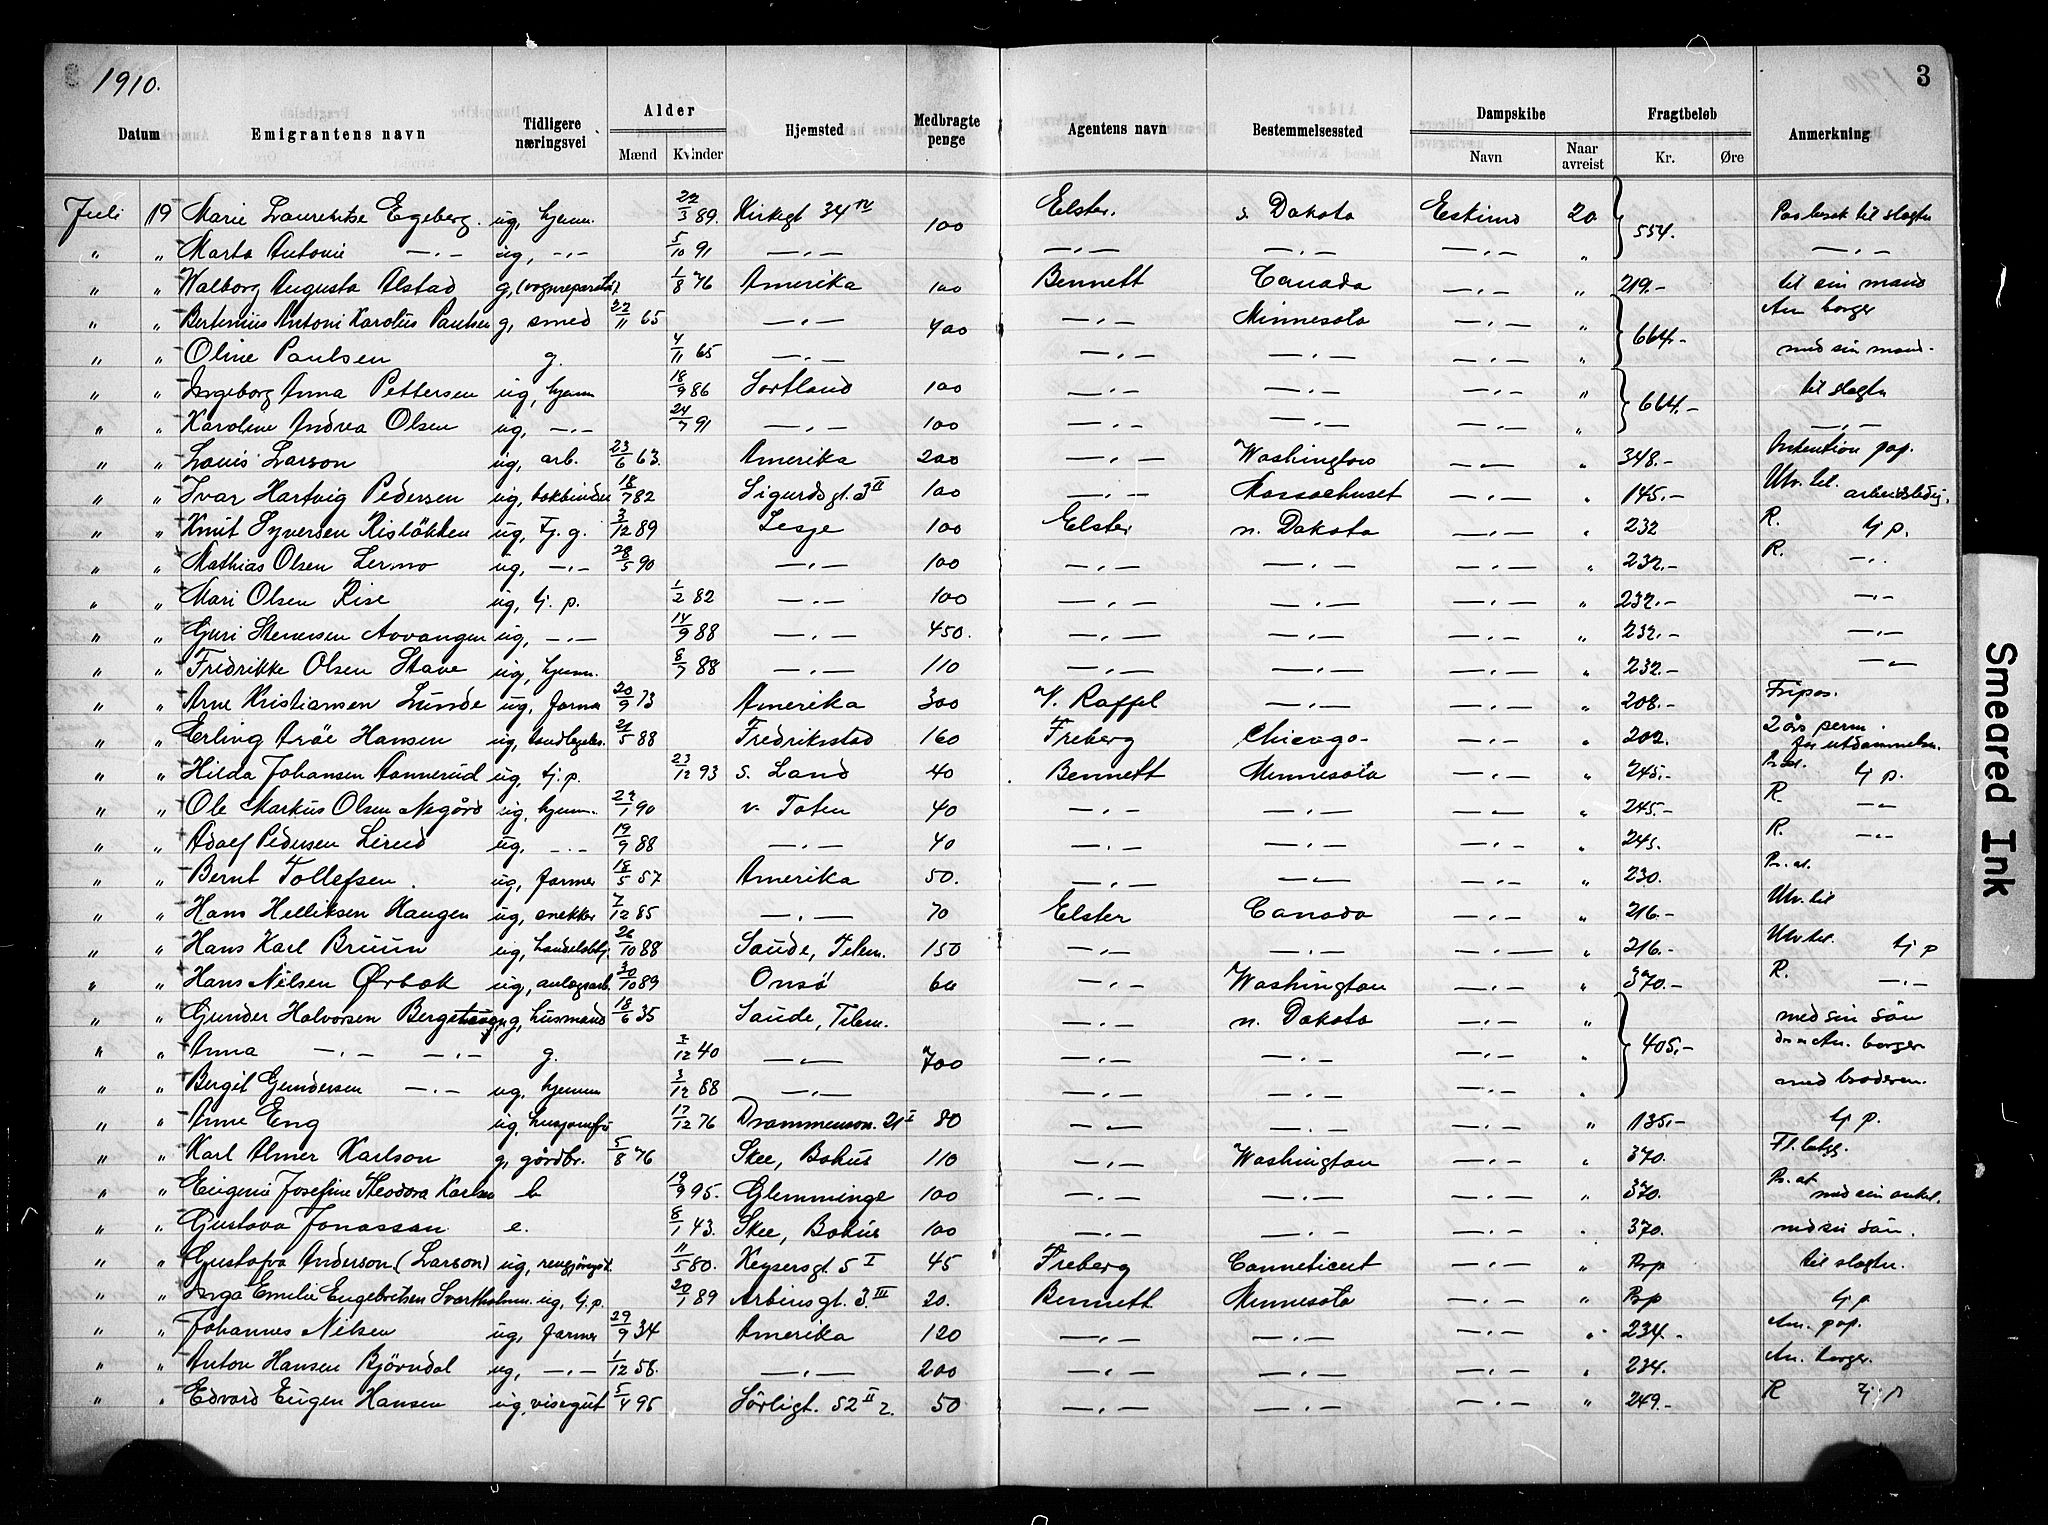 1910.
3
Datum | Emigrantens navn | Tidligere næringsvei | Alder Mænd Kvinder | Hjemsted | Medbragte penge | Agentens navn | Bestemmelsessted | Dampskibe Navn Naar avreist | Fragtbeløb Kr. Øre | Anmerkning
Juli 19 Marie Laurentse Egeberg. ug, hjemm. 22/3 89. Kirkegt 34 IV 100 Elster. s. Dakota Eskimo 20 554. Paa besøk til slegtn
" " Marta Antonie —.— ug, —.— 5/10 91 —.— —.— —.— —.— " —.—
" " Walborg Augusta Alstad g, (vognreparatør) 1/8 76 Amerika 100 Bennett Canada —.— " 219.- til sin mand
" " Bertinius Antoni Karolus Paulsen g, smed 22/11 65 —.— 400 —.— Minnesota —.— " 664.- Am borger
" " Oline Paulsen g. 4/11 65 —.— —.— —.— —.— " med sin mand.
" " Ingeborg Anna Pettersen ug, hjemm 18/9 86 Sortland 100 —.— —.— —.— " 664.- til slegtn
" " Karoline Andrea Olsen ug, —.— 24/7 91 —.— 100 —.— —.— —.— " —.—
" " Louis Larson ug, arb. 23/6 63. Amerika 200 —.— Washington —.— " 348.- Intention pap.
" " Ivar Hartvig Pedersen ug, bokbinder 18/7 82 Sigurdsgt. 3 II 100 —.— Massachuset —.— " 145.- Utv. til. arbeidsledig.
" " Knut Syversen Kisløkken ug, tj. g. 3/12 89 Lesje 100 Elster n. Dakota —.— " 232 R. tj p.
" " Mathias Olsen Lermo ug, —.— 28/5 90 —.— 100 —.— —.— —.— " 232.- R. —.—
" " Mari Olsen Rise ug, tj. p. 1/2 82 —.— 100 —.— —.— —.— " 232.- —.—
" " Guri Stenersen Avvangen ug, —.— 14/9 88 —.— 450. —.— —.— —.— " 232.- —.—
" " Fredrikke Olsen Stave ug, hjemm. 8/7 88 —.— 110 —.— —.— —.— " 232.- —.—
" " Arne Kristiansen Lunde ug, farmer 20/9 73 Amerika 300 V. Raffel —.— —.— " 208.- Fripas.
" " Erling Arøe Hansen ug, tandlægeelev. 21/5 88 Fredriksstad 160 Freberg Chicago —.— " 202. 2 års perm. for utdannelse.
" " Hilda Johansen Aannerud ug, tj. p. 23/12 93 S. Land 40 Bennett Minnesota —.— " 245.- tj p.
" " Ole Markus Olsen Nygård ug, hjemm. 27/1 90 v. Toten 40 —.— —.— —.— " 245.- R. —.—
" " Adolf Pedersen Lirud ug, —.— 19/9 88 —.— 40 —.— —.— —.— " 245. R. —.—
" " Bernt Tollefsen. ug, farmer 18/5 57 Amerika 50. —.— —.— —.— " 230. Pr. at.
" " Hans Helliksen Haugen ug, snekker 7/12 85 —.— 70 Elster Canada —.— " 216.- Utv. til
" " Hans Karl Bruun ug, handelsbtj. 26/10 88 Saude, Telem. 150 —.— —.— —.— " 216.- Utv til. tj p
" " Hans Nilsen Ørbæk ug, anlægsarb. 30/10 89 Onsø 60 —.— Washington —.— " 370.- R. —.—
" " Gunder Halvorsen Bergstuen g, husmand 18/6 35 Saude, Telem. —.— n. Dakota —.— " 405.- med sin søn
" " Anna —.— —.— g. 7/12 40 —.— 700 —.— —.— —.— " der er Am. borger
" " Bergit Gundersen —.— ug, hjemm 3/12 88 —.— —.— —.— —.— " med broderen.
" " Anne Eng ug, husjomfr 17/12 76 Drammensv. 21 I 80 —.— —.— —.— " 135.- tj p.
" " Karl Almer Karlson g, gårdbr. 5/8 76 Skee, Bohus 110 —.— Washington —.— " 370. Fl. betyg.
" " Eugenie Josefine Theodora Karlsen b 19/9 95. Glemminge 100 —.— —.— —.— " 370. Pr. at med sin onkel.
" " Gustava Jonasson e. 8/1 43. Skee, Bohus 100 —.— —.— —.— " 370. med sin søn.
" " Gustafva Anderson (Larson) ug, rengjøringsk. 11/5 80. Keysersgt 5 I 45 Freberg Conneticut —.— " Pp til slegtn.
" " Inga Emilie Engebretsen Svartholmen. ug, tj. p. 20/1 89 Arbinsgt. 3. III 20. Bennett Minnesota —.— " Pp tj p
" " Johannes Nilsen ug, farmer 29/9 34 Amerika 120 —.— —.— —.— " 234.- Am. pap.
" " Anton Hansen Bjørndal ug, —.— 1/12 58. —.— 200 —.— —.— —.— " 234. Am. borger.
" " Edvard Eugen Hansen ug, visergut 5/4 95 Sørligt. 52 II 50 —.— —.— —.— " 249.- R tj p
Smeared Ink